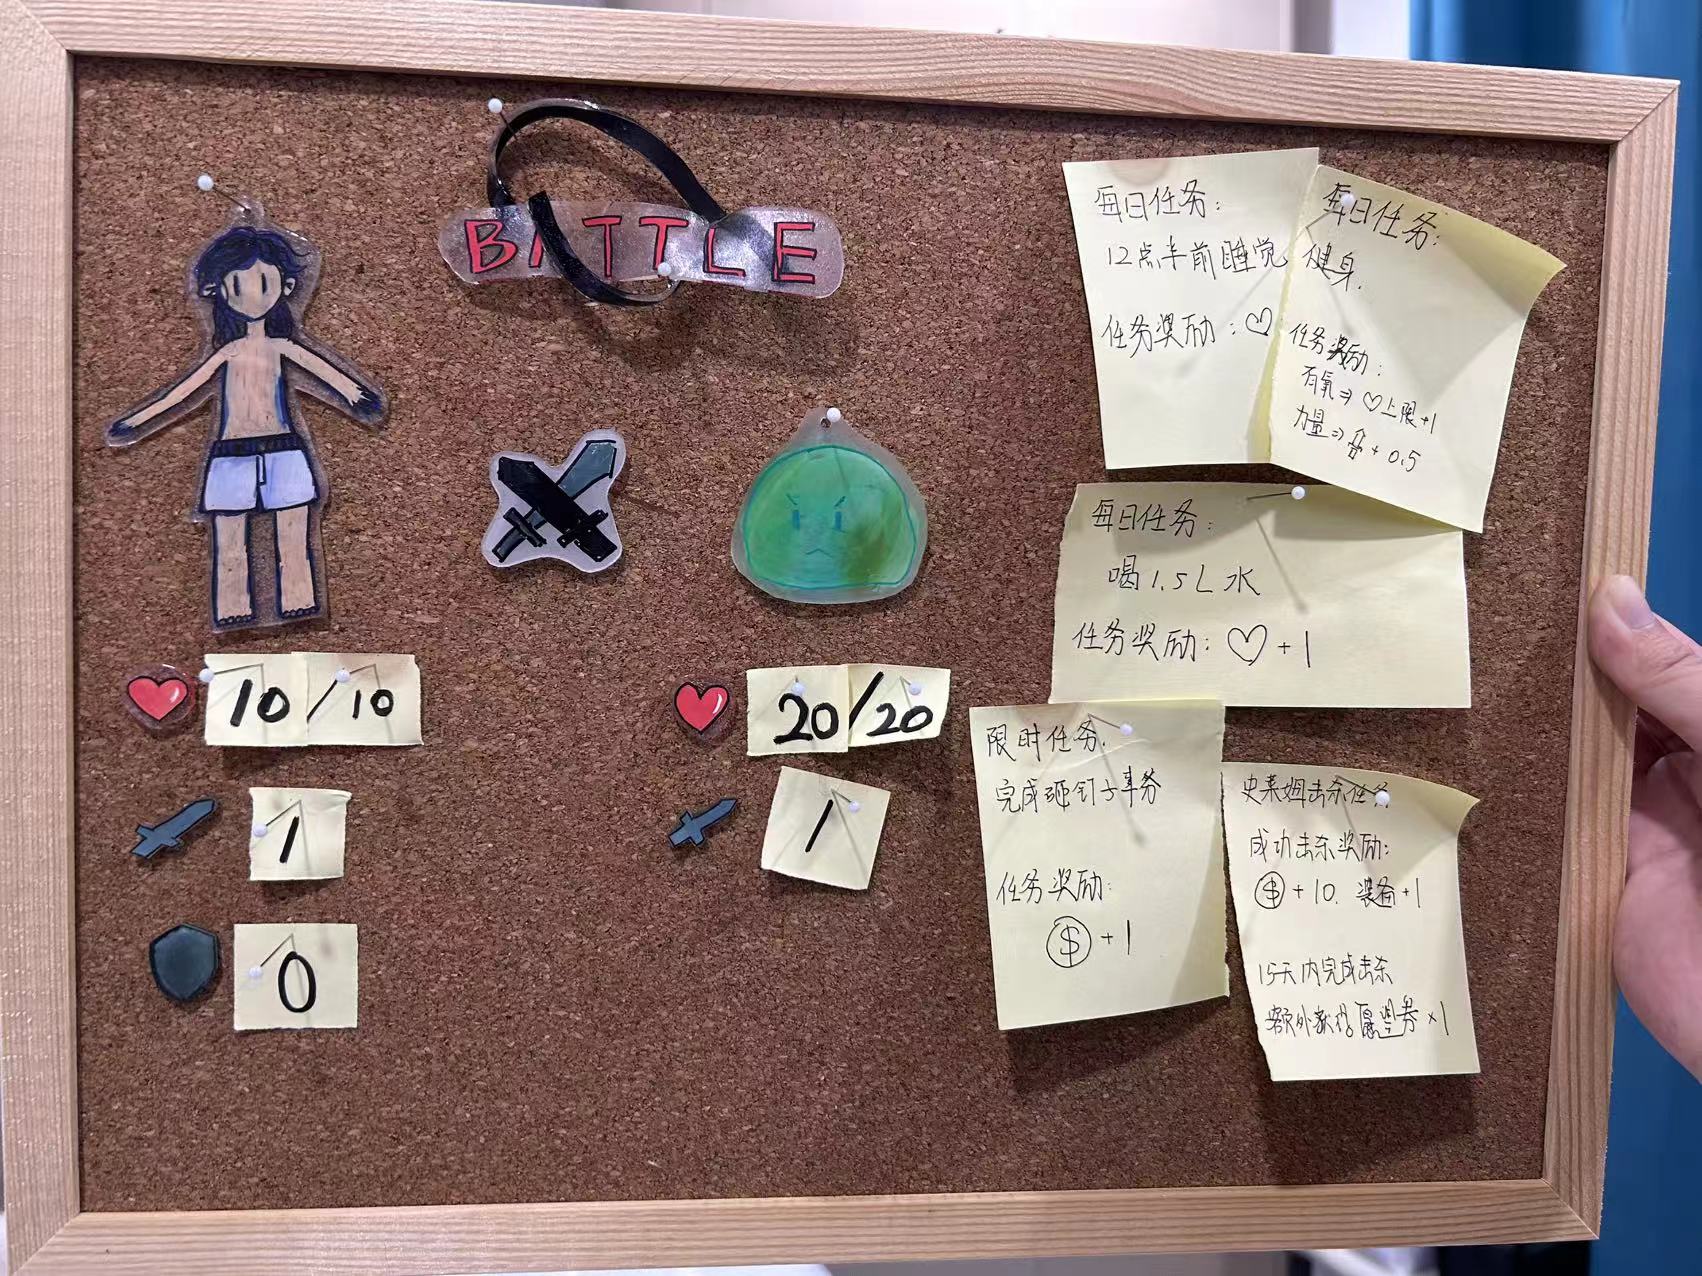 BATTLE
10/10
1
0
20/20
1
每日任务:
12点半前睡觉
任务奖励:♡
每日任务:
健身.
任务奖励:
有氧⇒♡上限+1
力量⇒ + 0.5
每日任务:
喝1.5L水
任务奖励:♡+1
限时任务.
完成砸钉子事务
任务奖励:
$ +1
史莱姆击杀任务
成功击杀奖励:
$ +10. 装备+1
15天内完成击杀
额外获得愿望券×1